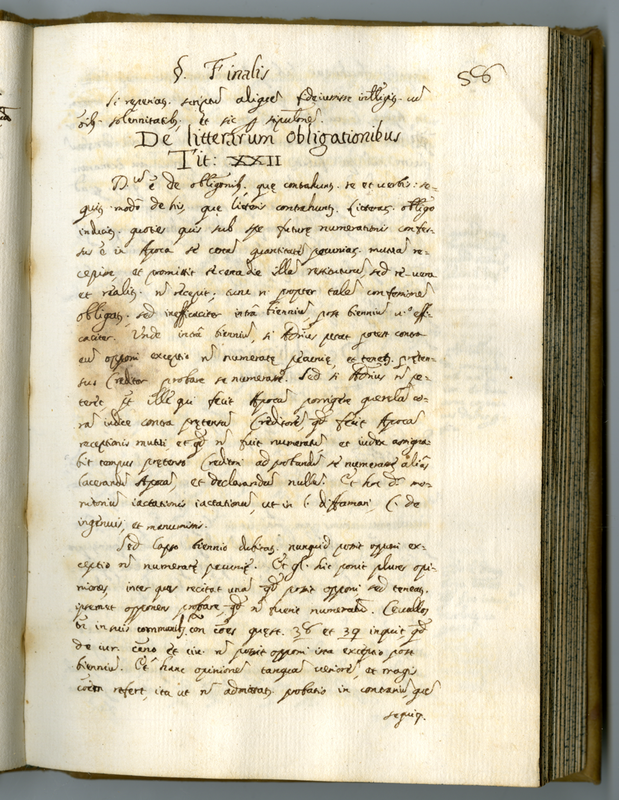 §. Finalis
56
si reperiat. scriptu aliqe fideiussisse intelligit. in
oib. solennitatib. et sic
De litterarum obligationibus
Tit: XXII
Dictu e de obligonib. que contrahunt. re et verbis: se-
quit. modo de his, que litteris contrahunt. Litterar. obligo
inducit. quoties quis sub spe future numerationis confes-
sus e in Apoca se certa quantitate pecunias mutua re-
cepisse, et promittit se certa die illa restituturu sed re vera
et realit. n recepit, tunc n propter tale confessione
obligat. sed inefficaciter intra biennium, post biennium u.o effi-
caciter. Unde intra biennium, si Adrius petat potest contra
eu opponi exceptio n numerate pecunie, et tenet. preten-
sus Creditor probare se numerasse. Sed si Adrius n pe-
teret, pt ille qui fecit Apoca porrigere querela co-
ra iudice contra pretensu Creditore qd fecit Apoca
receptionis mutui et qd n fuit numerata et iudex assigna-
bit tempus pretenso Creditori ad probandu se numerasse alias
lacerandu Apoca, et declarandu nulla. Et hoc dr mo-
nitoriu iactationis iactationu ut in l. diffamari, C. de
ingenuis, et manumissis.
Sed lapso biennio dubitat. nunquid possit opponi ex-
ceptio n numerate pecunie. Et gl. hic ponit plures opi-
niones, inter quas recitat una qd possit opponi sed teneat.
ipsemet opponens probare qd n fuerit numerata. Cevallos
in suis con coes quest. 38 et 39 inquit qd
de iur. cano et civ. n possit opponi ista exceptio post
biennium. Et hanc opinione tanqua veriore, et magis
coem refert, ita ut n admittat. probatio in contrariu, que
sequit.